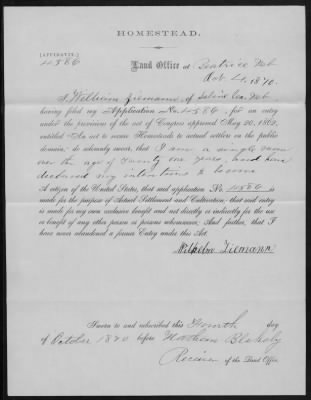 HOMESTEAD.
[AFFIDAVIT.]
4586
Land Office at Beatrice Neb
Oct. 4, 1870.
I, William Ziemann, of Saline Co. Neb
having filed my Application No. 4586, for an entry
under the provisions of the act of Congress approved May 20, 1862,
entitled "An act to secure Homesteads to actual settlers on the public
domain," do solemnly swear, that I am a single man
over the age of twenty one years, and have
declared my intentions to become
A citizen of the United States, that said application No. 4586 is
made for the purpose of Actual Settlement and Cultivation; that said entry
is made for my own exclusive benefit and not directly or indirectly for the use
or benefit of any other person or persons whomsoever; And further, that I
have never abandoned a former Entry under this Act.
Wilhelm Ziemann
Sworn to and subscribed this Fourth day
of October 1870 before Nathan Blakely
Receiver of the Land Office.